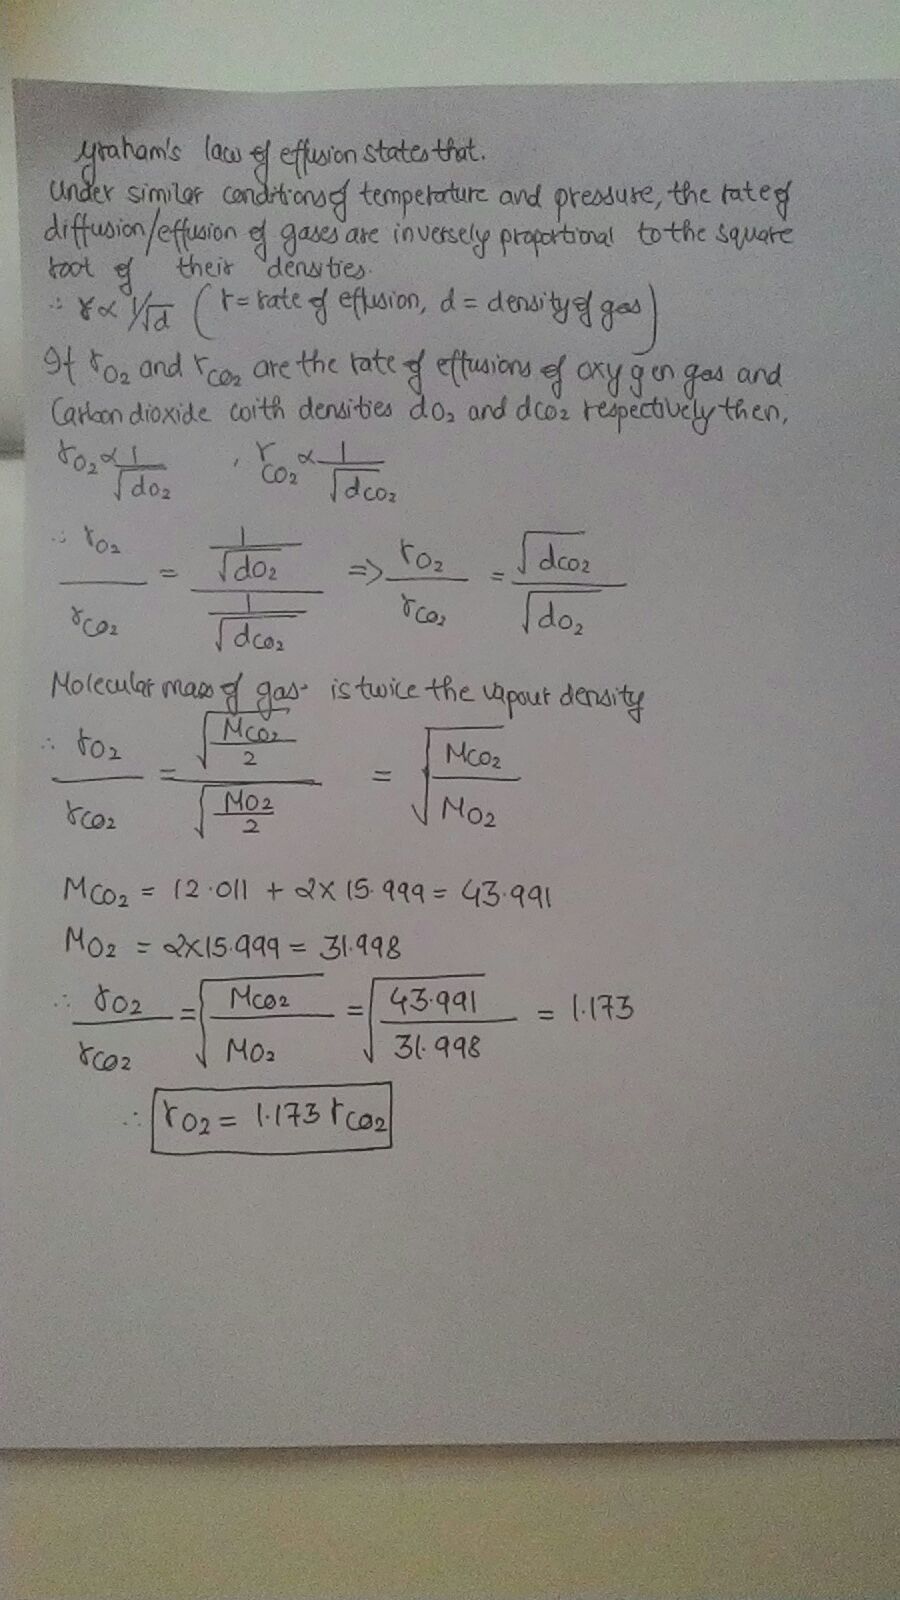 Graham's law of effusion states that.
Under similar conditions of temperature and pressure, the rate of
diffusion/effusion of gases are inversely proportional to the square
root of their densities.
∴ r ∝ 1/√d (r = rate of effusion, d = density of gas)
If rO2 and rCO2 are the rate of effusions of oxygen gas and
Carbon dioxide with densities dO2 and dCO2 respectively then,
rO2 ∝ 1/√dO2 , rCO2 ∝ 1/√dCO2
∴ rO2/rCO2 = (1/√dO2)/(1/√dCO2) => rO2/rCO2 = √dCO2/√dO2
Molecular mass of gas is twice the vapour density
∴ rO2/rCO2 = √(MCO2/2)/√(MO2/2) = √(MCO2/MO2)
MCO2 = 12.011 + 2×15.999 = 43.991
MO2 = 2×15.999 = 31.998
∴ rO2/rCO2 = √(MCO2/MO2) = √(43.991/31.998) = 1.173
∴ rO2 = 1.173 rCO2